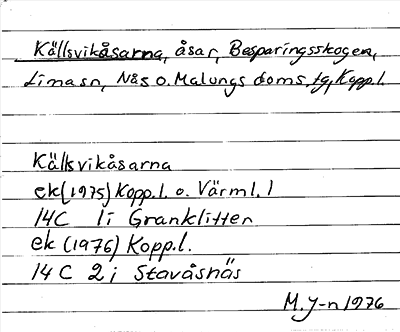 Källsvikåsarna, åsar, Besparingsskogen,
Lima sn, Nås o. Malungs doms. tg, Kopp.l.
Källsvikåsarna
ek (1975) Kopp.l. o. Värml. l
14C 1i Granklitten
ek (1976) Kopp.l.
14 C 2i Stavåsnäs
M. J-n 1976